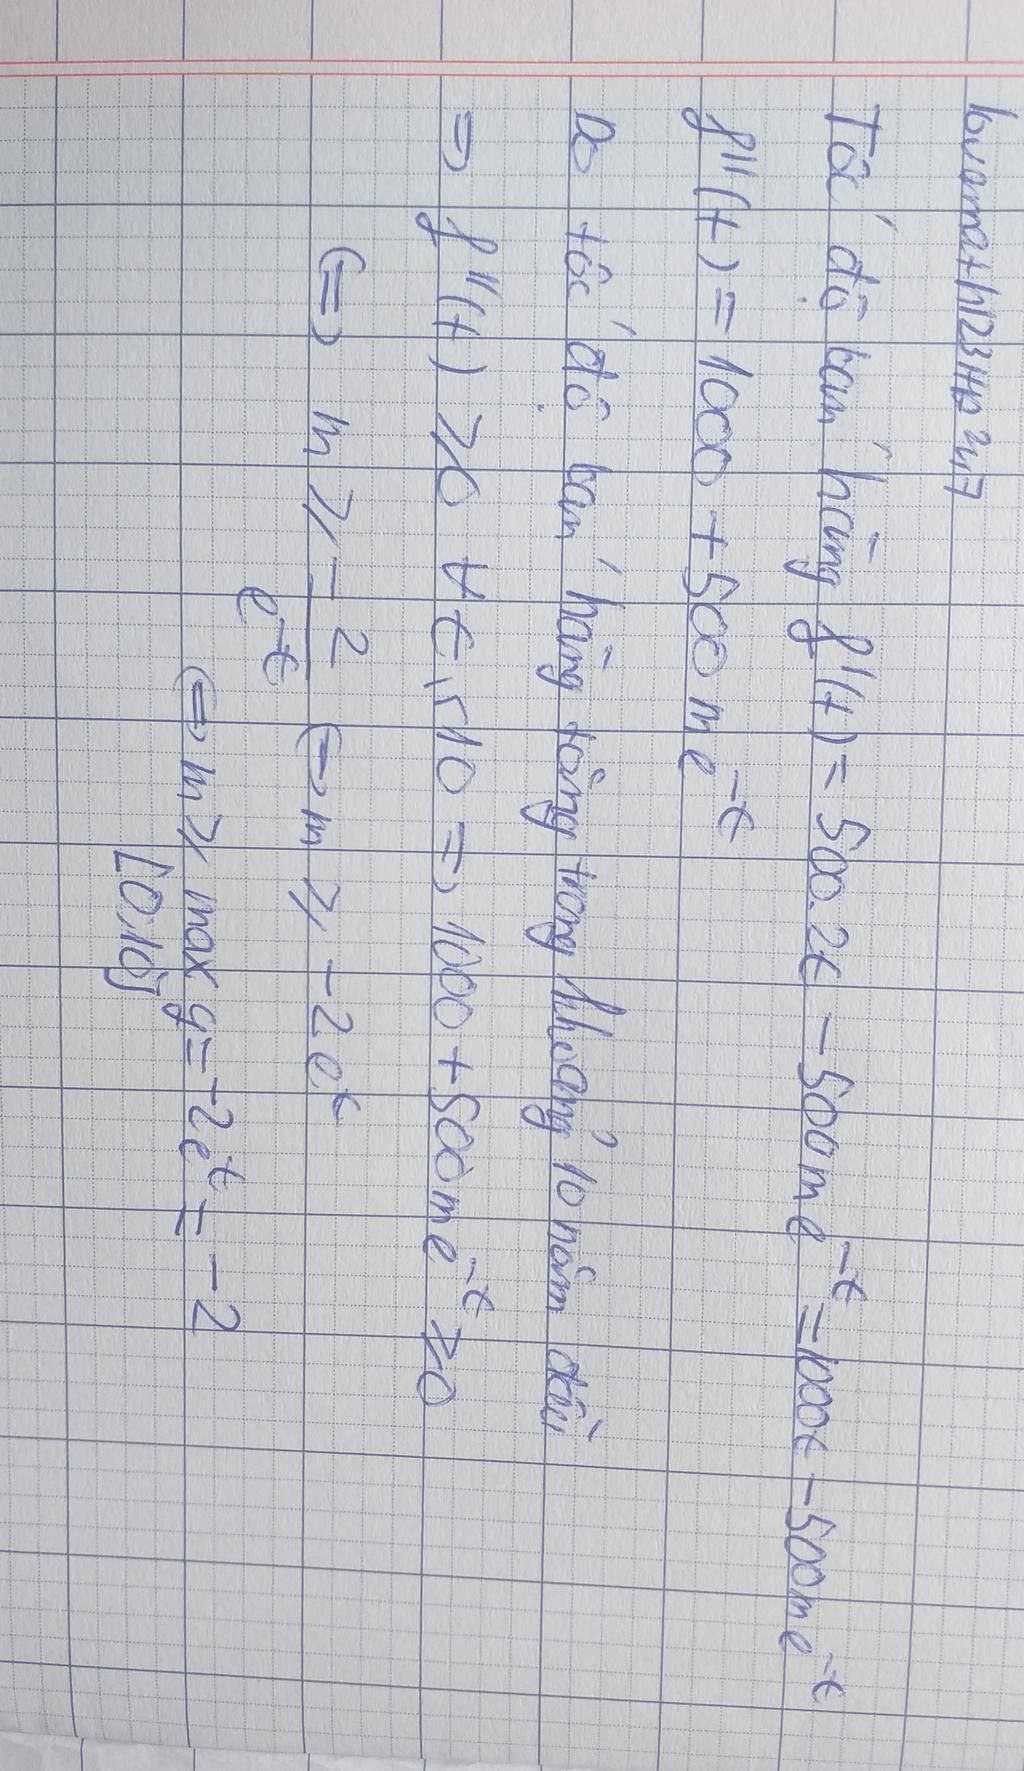 Tốc độ bán hàng f'(t) = 500.2t - 500me^{-t} = 1000t - 500me^{-t}
f''(t) = 1000 + 500me^{-t}
Do tốc độ bán hàng tăng trong khoảng 10 năm đầu
=> f''(t) ≥ 0 ∀ t ≤ 10 => 1000 + 500me^{-t} ≥ 0
<=> m ≥ -2/e^{-t} <=> m ≥ -2e^t
<=> m ≥ max y = -2e^t = -2
[0,10]